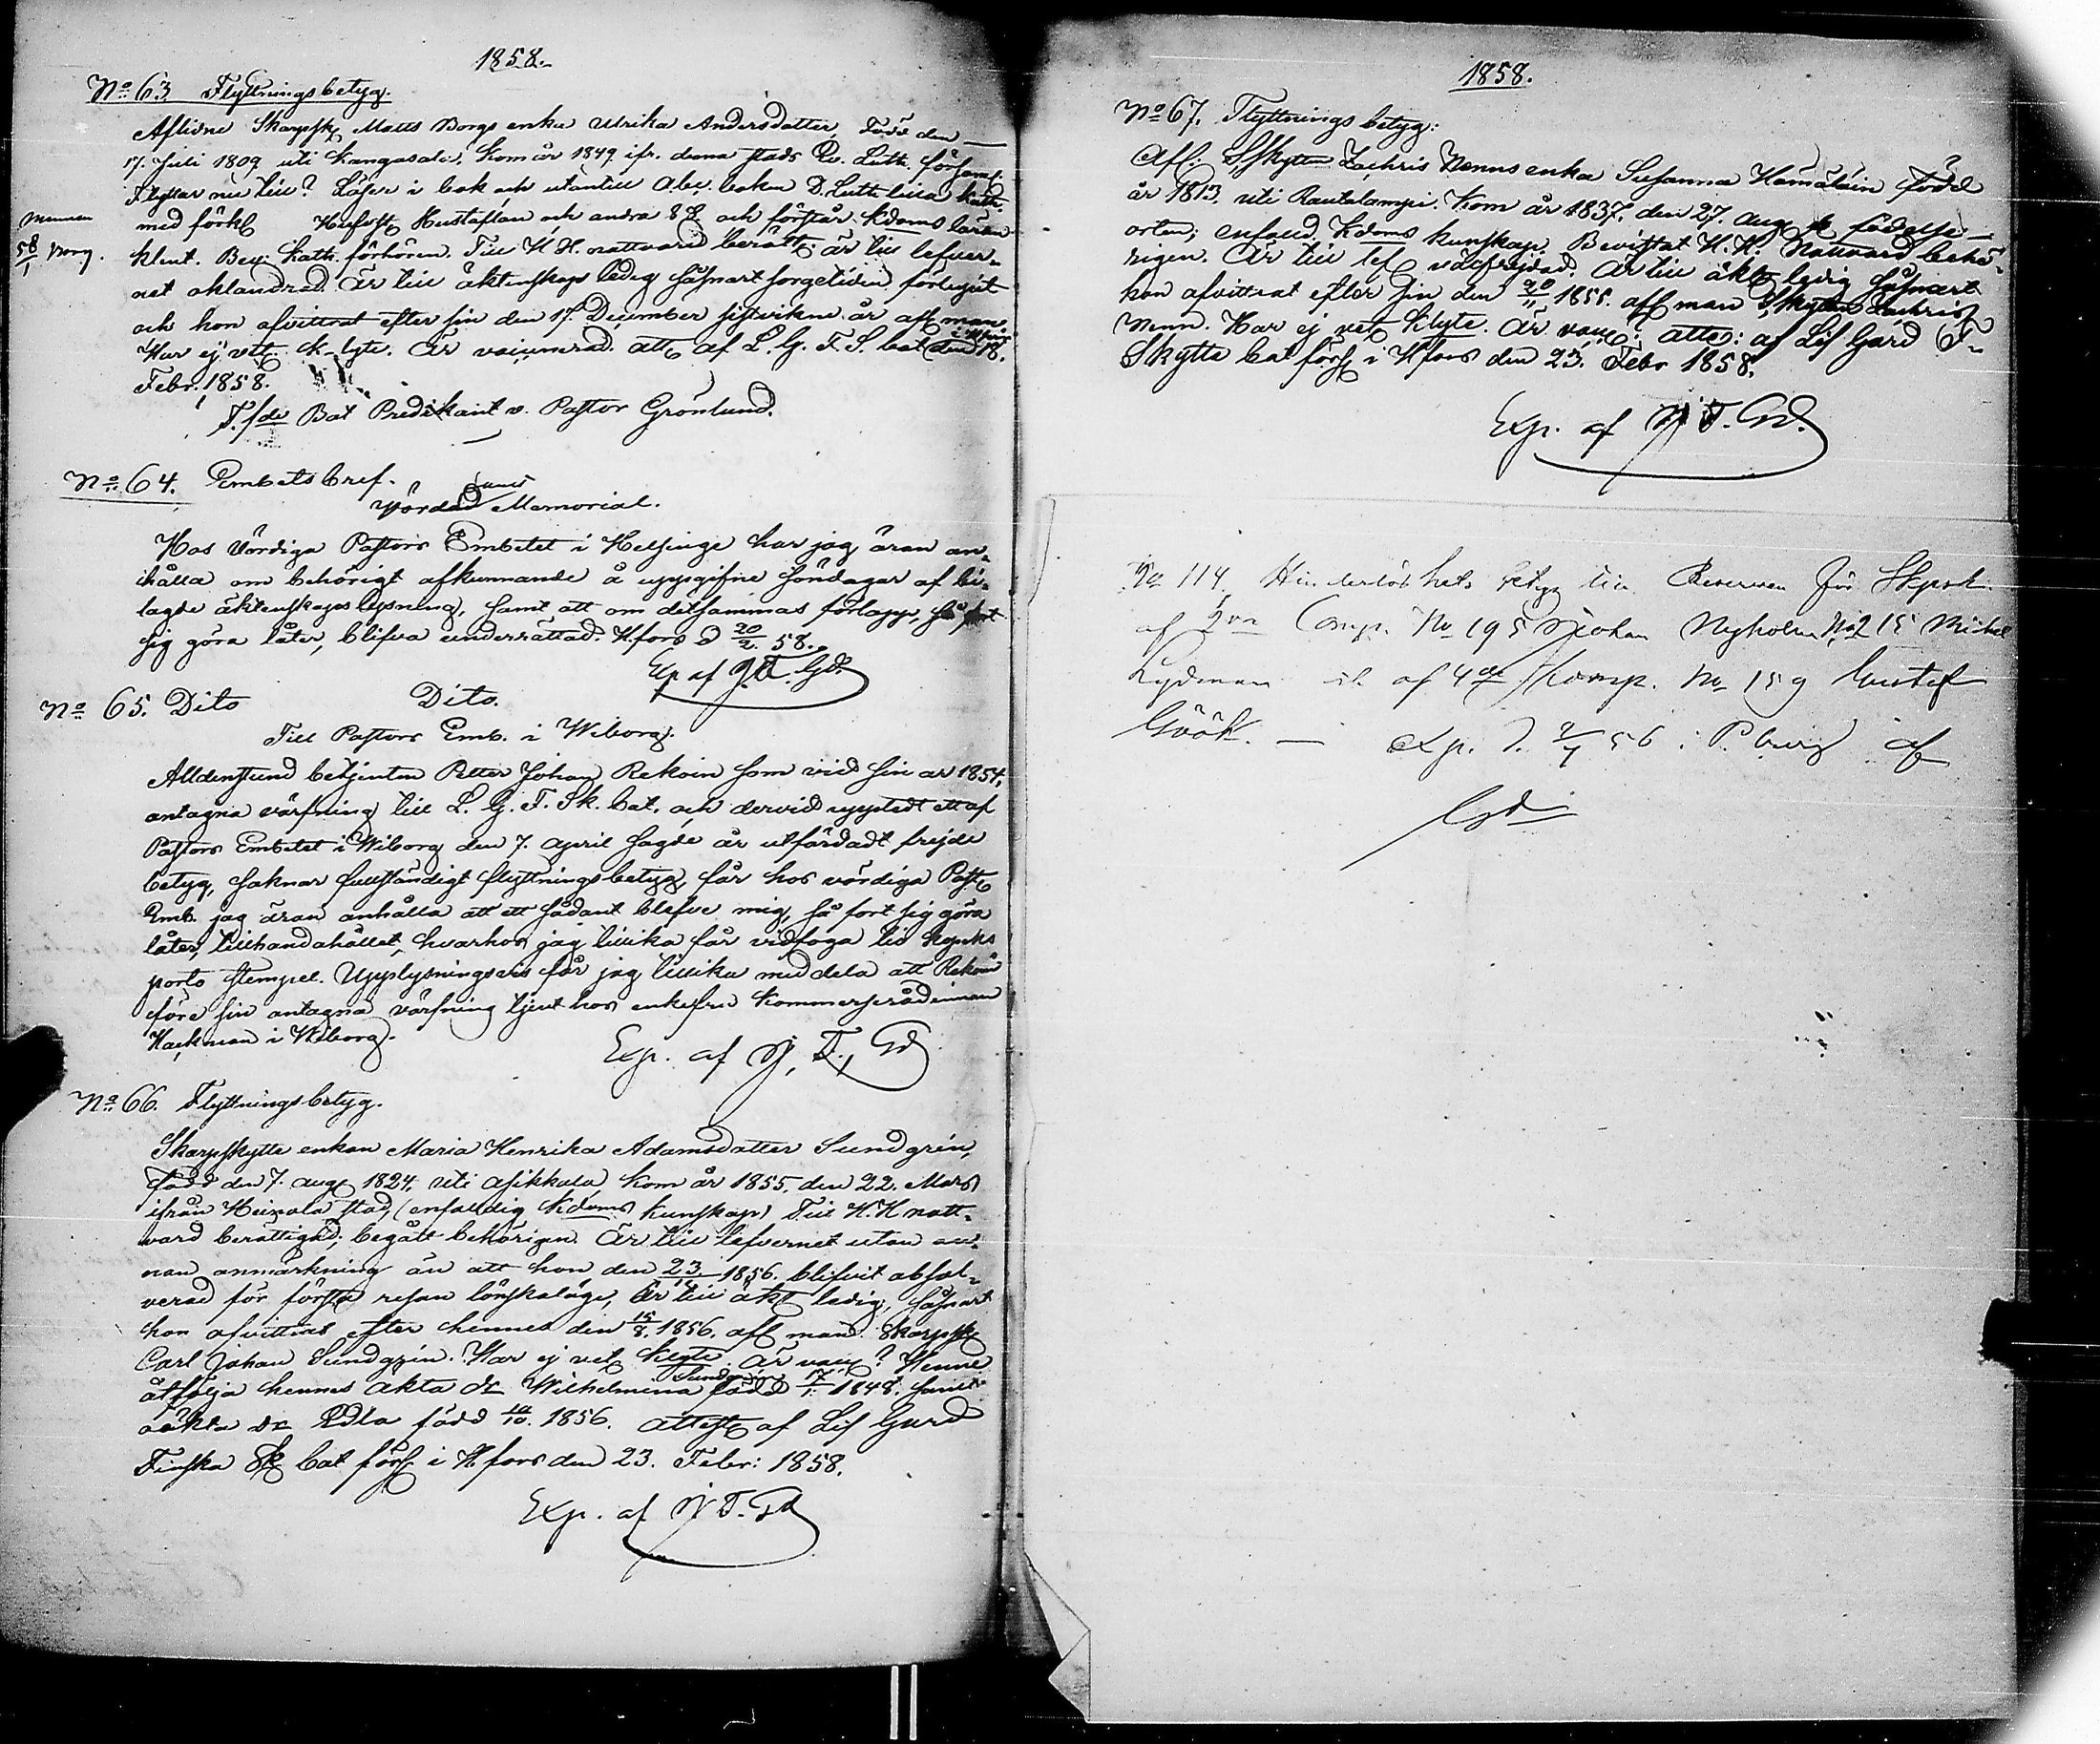 1858.
No 63 Flyttningsbetyg.
Aflidne Skarpsk Matts Borgs enka Ulrika Andersdotter, Född den
17 Juli 1809 uti Kangasala, Kom år 1849 ifr. denna stads Ev. Luth. församl.
Flyttar nu till? Läser i bok och utantill abc. boken D. Luth. lilla kath.
med förkl Hustaflan och andra och förstår Kdoms läran
klent. Bev. Kath. förhören. Till H. H. nattvard berätt: är till lefver-
net oklandrad. Är till äktenskap ledig såsnart sorgetiden förlupit
och hon afvittrat efter sin den 17. December sistvikne år afl. man.
Har ej vet. lyte. Är vaccinerad. att af L. G. F. S. bat den 18.
Febr. 1858.
T.f. Bat Predikant v. Pastor Grönlund.
58/1 Borg.
No 64. Embetsbref.
Vördsamt Memorial.
Hos Vördiga Pastors Embetet i Helsinge har jag äran an-
hålla om behörigt afkunnande å uppgifne söndagar af bi-
lagde äktenskaps lysning, samt att om detsammas förlopp, så fort
sig göra låter, blifva underrättad. H.fors d 20/2. 58.
Exp af J.T. Gd.
No 65. Dito Dito.
Till Pastors Emb. i Wiborg.
Alldenstund betjenten Petter Johan Rekoin som vid sin år 1854,
antagna värfning till L. G. F. Sk. bat. och dervid uppstedt ett af
Pastors Embetet i Wiborg den 7. April sagde år utfärdadt frejde
betyg, saknar fullständigt flyttningsbetyg, får hos vördiga Past
Emb. jag äran anhålla att ett sådant blefve mig, så fort sig göra
låter, tillhandahållet, hvarhos jag tillika får vidfoga tio kopeks
porto stempel. Upplysningsvis får jag tillika meddela att Rekoin
före sin antagna värfning tjent hos enkefru Kommerserådinnan
Hackman i Wiborg.
Exp. af J. T. Gd
No 66. Flyttningsbetyg.
Skarpskytte enkan Maria Henrika Adamsdotter Sundgrén,
född den 7. aug 1824, uti Asikkala, Kom år 1855, den 22. Mars
ifrån Heinola stad, (enfaldig Kdoms kunskap) Till H. H natt-
vard berättigad; begått behörigen. Är till lefvernet utan an-
nan anmärkning än att hon den 23 1856. blifvit absol-
verad för första resan lönskaläge, Är till äkt ledig, såsnart
hon afvittrat efter hennes den 15/8. 1856. afl man Skarpsk
Carl Johan Sundgrén. Har ej vet. lyte. Är vacc? Henne
åtfölja hennes äkta dr Wilhelmina Sundgrén född 17/1. 1848. samt
oäkta dr Edla född 1856. attest af Lif Gard
Finska Sk bat förs i H.fors den 23. Febr: 1858.
Exp. af J T. Gd
1858.
No 67. Flyttnings betyg:
Afl. Skytten Zachris Nenns enka Susanna Hämäläin född
år 1813. uti Rautalampi. Kom år 1837, den 27. aug fr födelse-
orten; enfald Kdoms kunskap. Bevistat H. H. Nattvard behö-
rigen. Är till lef välfrejdad. Är till äkt ledig såsnart
hon afvittrat efter sin den 1855. afl man Skytten Zachris
Nenn. Har ej vet lyte. Är vacc; attes: af Lif Gard F-
Skytte bat förs i H.fors den 23. Febr 1858.
Exp. af J T. Gd.
No 114. Hinderlöshets betyg till Reserven för Skpsk.
af Comp. No 195 Johan Nyholm, No 215 Michel
Lydman af 4de Komp. No 159 Gustaf
Göök. — Exp. d. 56 i P.burg af
Gd